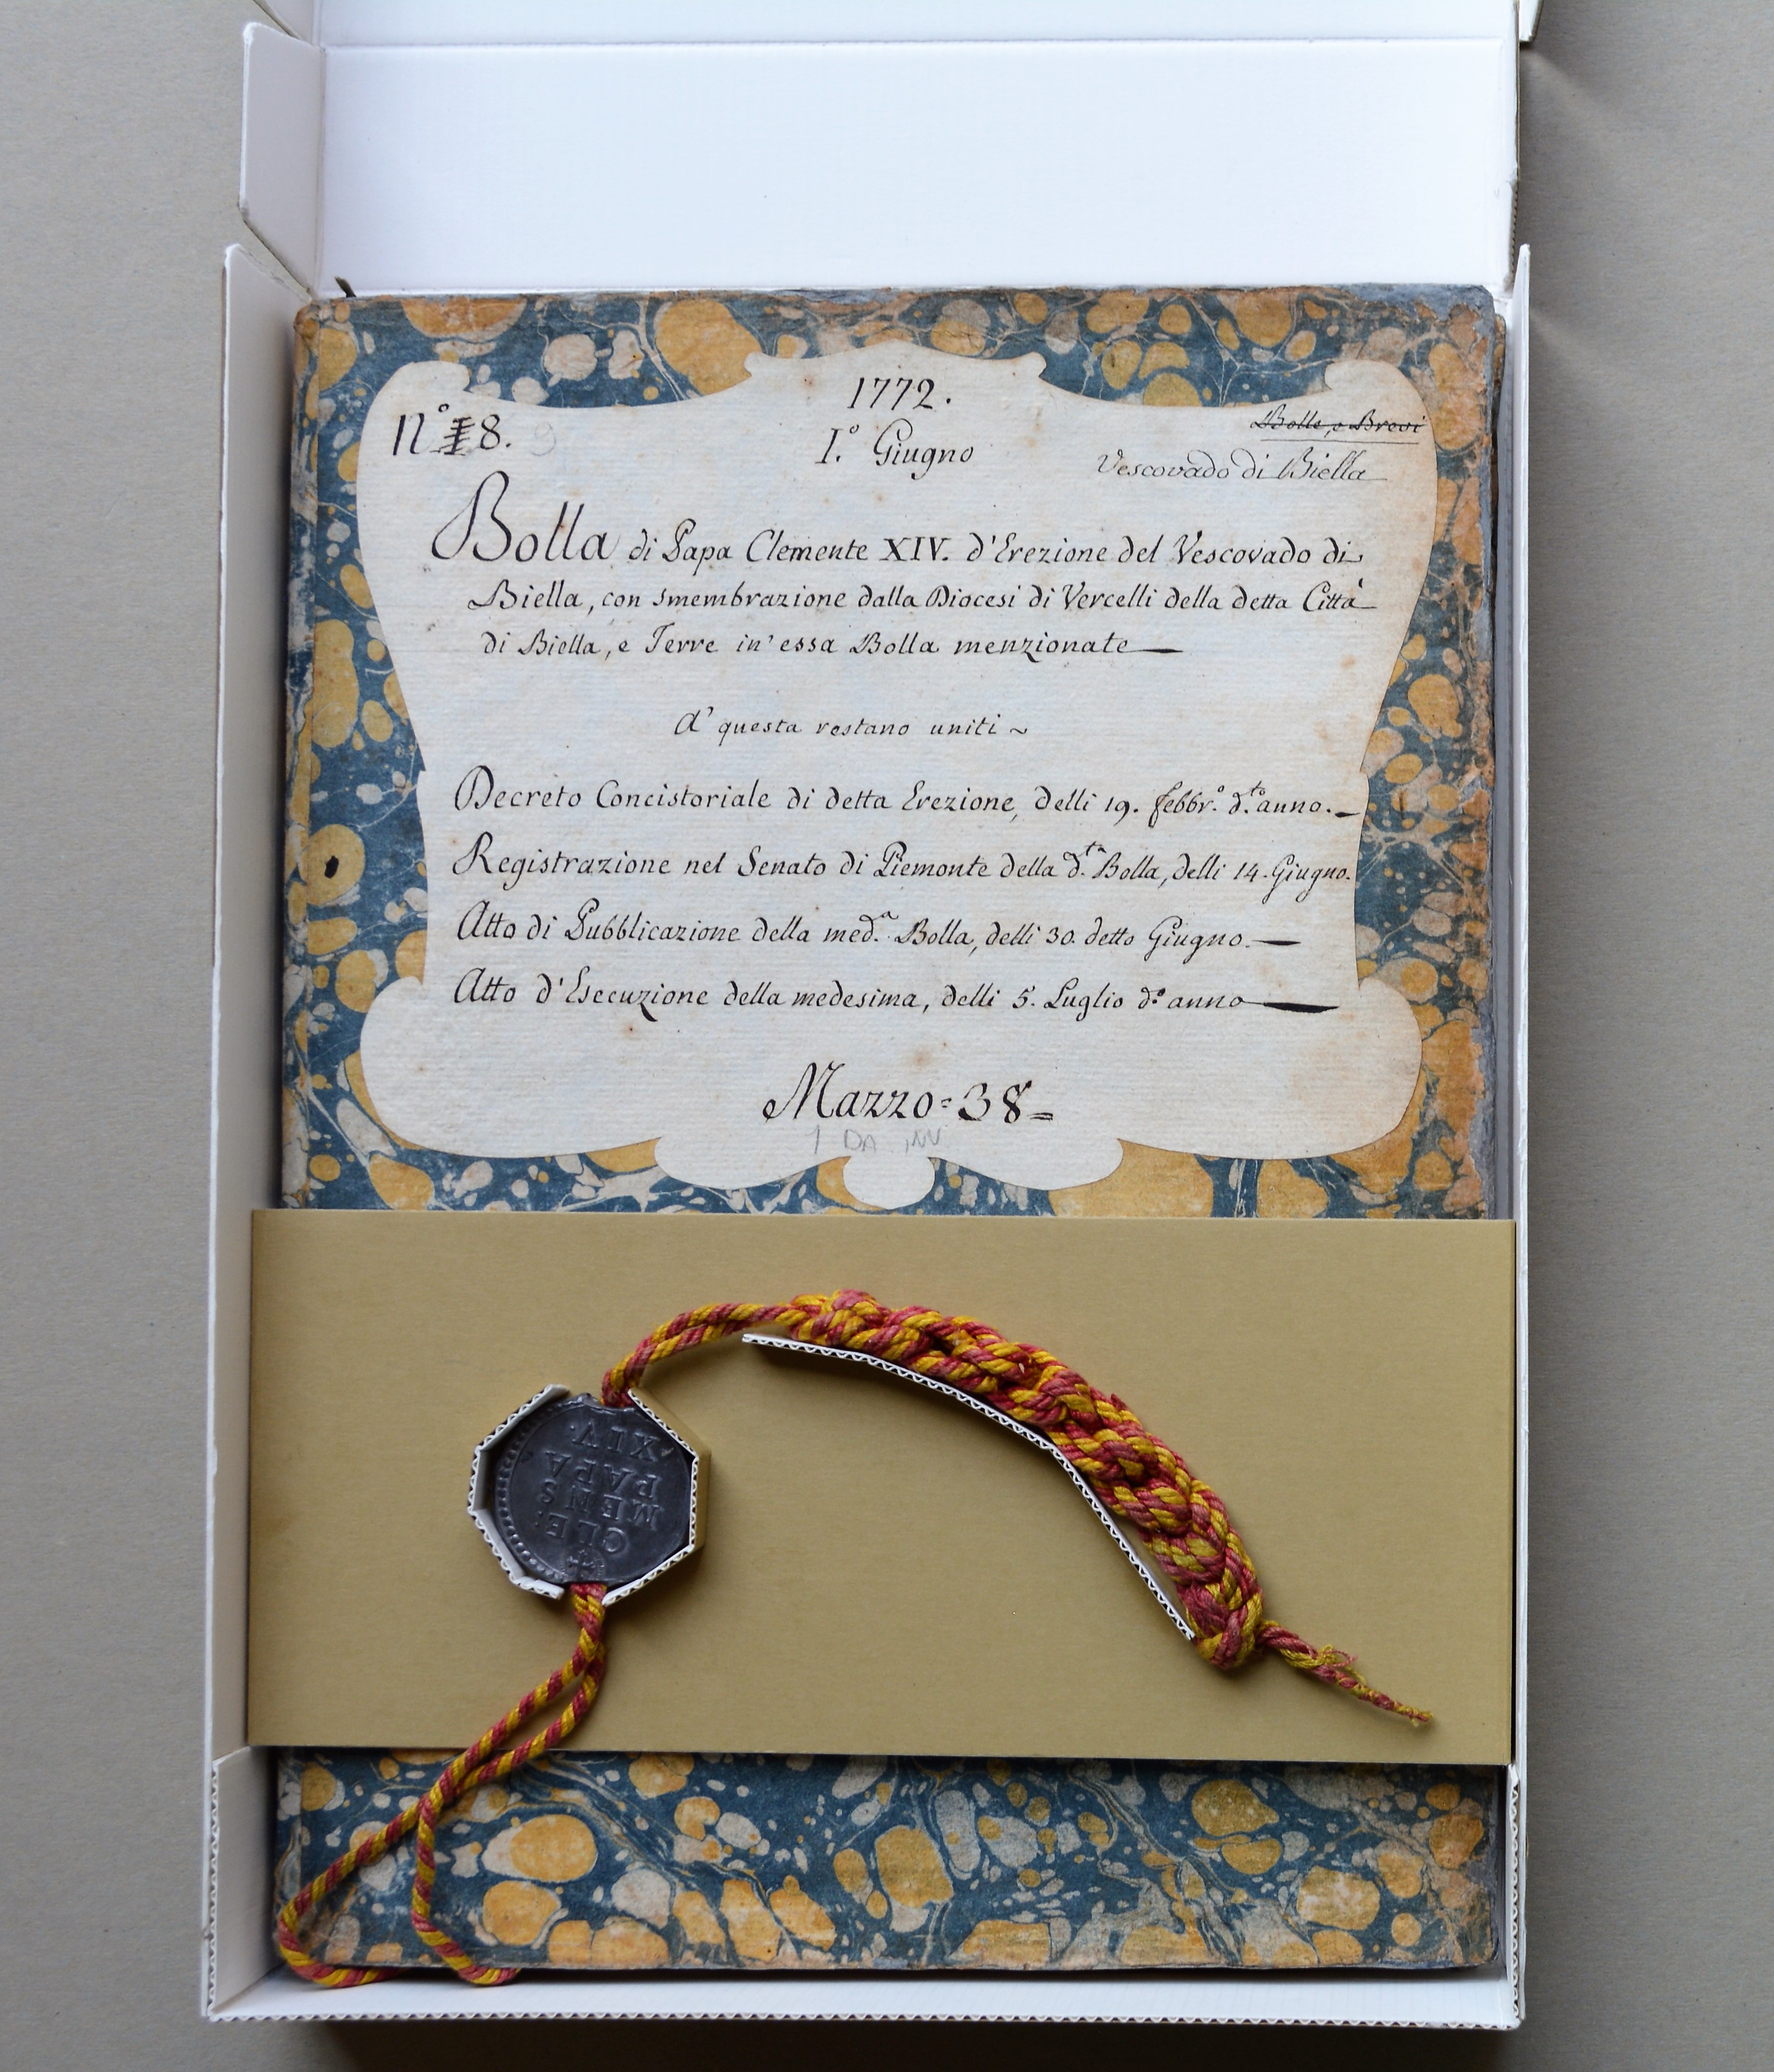 1772.
N° 8. 9
I.° Giugno
Bolle, e Brevi
Vescovado di Biella
Bolla di Papa Clemente XIV. d'Erezione del Vescovado di
Biella, con smembrazione dalla Diocesi di Vercelli della detta Città
di Biella, e Terre in' essa Bolla menzionate
A' questa restano uniti ~
Decreto Concistoriale di detta Erezione, delli 19. febbr.° d.to anno.
Registrazione nel Senato di Piemonte della d.ta Bolla, delli 14. Giugno.
Atto di Pubblicazione della med.a Bolla, delli 30. detto Giugno.
Atto d'Esecuzione della medesima, delli 5. Luglio d.° anno
Mazzo = 38 =
1 DA INV
CLE:
MENS
PAPA
XIV.